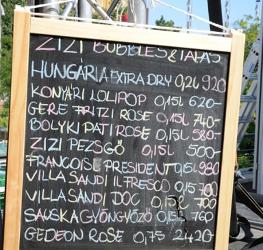 ZIZI BUBBLES & TAPAS
HUNGÁRIA EXTRA DRY 0,2L 920
KONYÁRI LOLIPOP 0,15L 620-
GERE FRITZI ROSE 0,15L 740-
BOLYKI PATI ROSE 0,15L 580-
ZIZI PEZSGŐ 0,15L 500-
FRANCOIS L. PRESIDENT 0,15L 980
VILLA SANDI IL FRESCO 0,15 700
VILLA SANDI DOC 0,15L 700
SAUSKA GYÖNGYÖZŐ 0,15L 760
GEDEON ROSE 0,75 2420